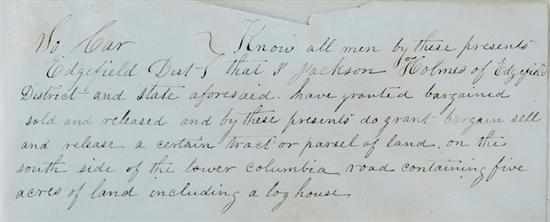 So Car } Know all men by these presents
Edgefield Dist } that I Jackson Holmes of Edgefield
District and State aforesaid have granted bargained
sold and released and by these presents do grant bargain sell
and release a certain tract or parsel of land. on the
south side of the lower columbia road containing five
acres of land including a log house